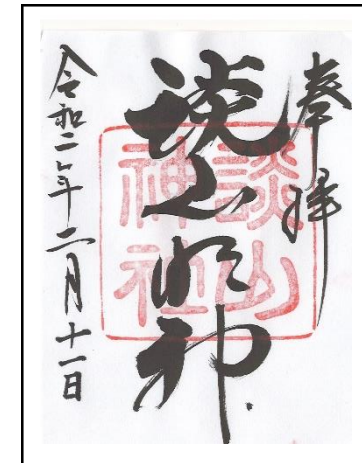 奉拝
談山明神
談山神社
令和二年二月十一日